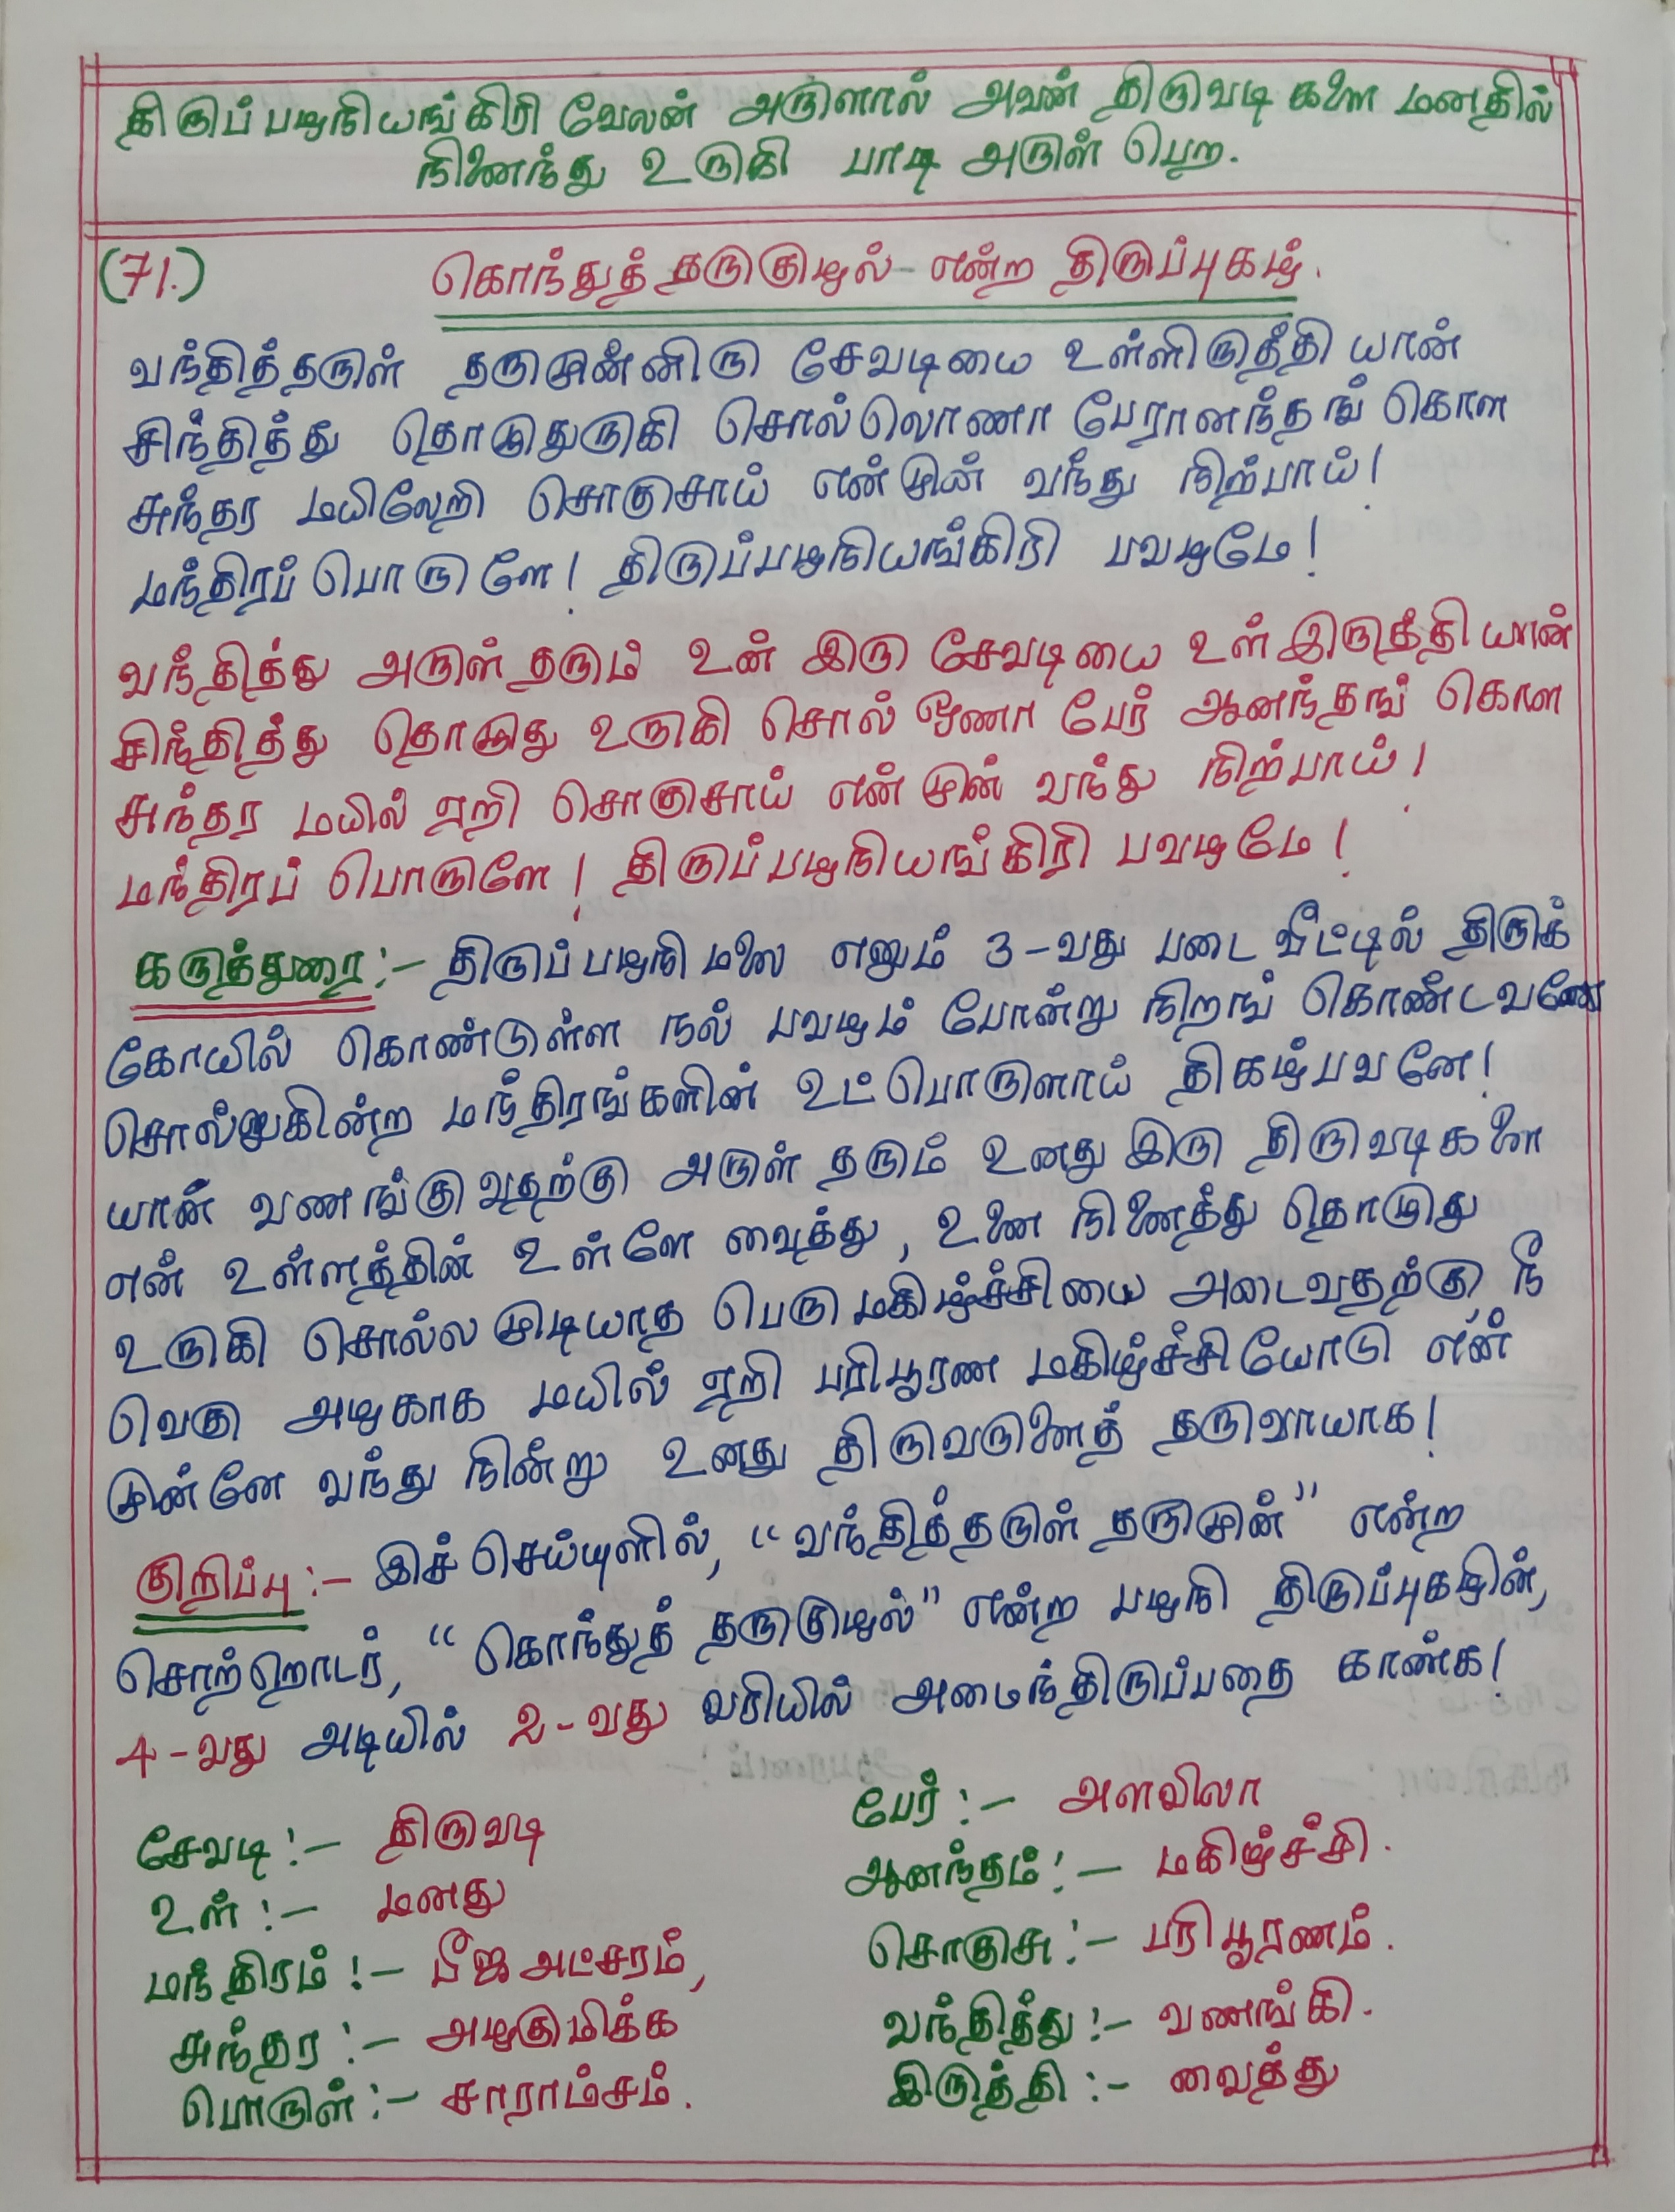 திருப்பழநியங்கிரி வேலன் அருளால் அவன் திருவடிகளை மனதில்
நினைந்து உருகி பாடி அருள் பெற.
(71.) கொந்துத் தருகுழல் - என்ற திருப்புகழ்.
வந்தித்தருள் தருமுன்னிரு சேவடியை உள்ளிருத்தி யான்
சிந்தித்து தொழுதுருகி சொல்லொணா பேரானந்தங் கொள
சுந்தர மயிலேறி சொகுசாய் என்முன் வந்து நிற்பாய்!
மந்திரப் பொருளே! திருப்பழநியங்கிரி பவழமே!
வந்தித்து அருள் தரும் உன் இரு சேவடியை உள் இருத்தி யான்
சிந்தித்து தொழுது உருகி சொல் ஒணா பேர் ஆனந்தங் கொள
சுந்தர மயில் ஏறி சொகுசாய் என் முன் வந்து நிற்பாய்!
மந்திரப் பொருளே! திருப்பழநியங்கிரி பவழமே!
கருத்துரை:- திருப்பழநி மலை எனும் 3-வது படை வீட்டில் திருக்
கோயில் கொண்டுள்ள நல் பவழம் போன்று நிறங் கொண்டவனே
சொல்லுகின்ற மந்திரங்களின் உட்பொருளாய் திகழ்பவனே!
யான் வணங்குவதற்கு அருள் தரும் உனது இரு திருவடிகளை
என் உள்ளத்தின் உள்ளே வைத்து, உனை நினைத்து தொழுது
உருகி சொல்ல முடியாத பெரு மகிழ்ச்சியை அடைவதற்கு, நீ
வெகு அழகாக மயில் ஏறி பரிபூரண மகிழ்ச்சியோடு என்
முன்னே வந்து நின்று உனது திருவருளைத் தருவாயாக!
குறிப்பு:- இச் செய்யுளில், "வந்தித்தருள் தருமுன்" என்ற
சொற்றொடர், "கொந்துத் தருகுழல்" என்ற பழநி திருப்புகழின்,
4-வது அடியில் 2-வது வரியில் அமைந்திருப்பதை காண்க!
சேவடி:- திருவடி
உள்:- மனது
மந்திரம்:- பீஜ அட்சரம்,
சுந்தர:- அழகுமிக்க
பொருள்:- சாராம்சம்.
பேர்:- அளவிலா
ஆனந்தம்:- மகிழ்ச்சி.
சொகுசு:- பரிபூரணம்.
வந்தித்து:- வணங்கி.
இருத்தி:- வைத்து